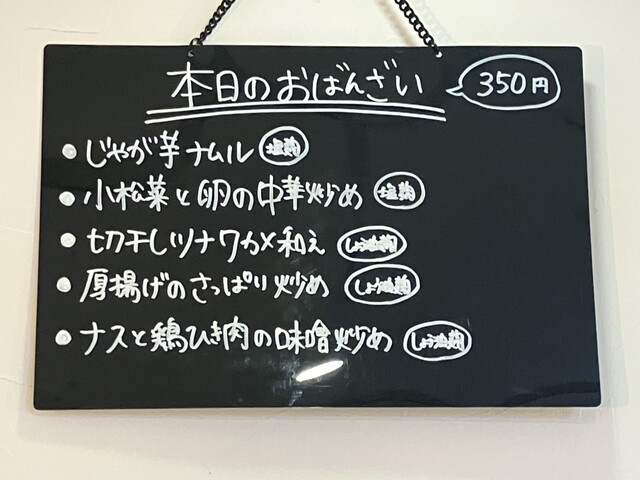 本日のおばんざい 350円
じゃが芋ナムル 塩麹
小松菜と卵の中華炒め 塩麹
切干しツナワカメ和え しょう油麹
厚揚げのさっぱり炒め しょう油麹
ナスと鶏ひき肉の味噌炒め しょう油麹